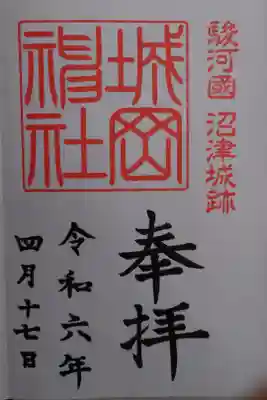 駿河國 沼津城跡
城岡
神社
奉拝
令和六年
四月十七日